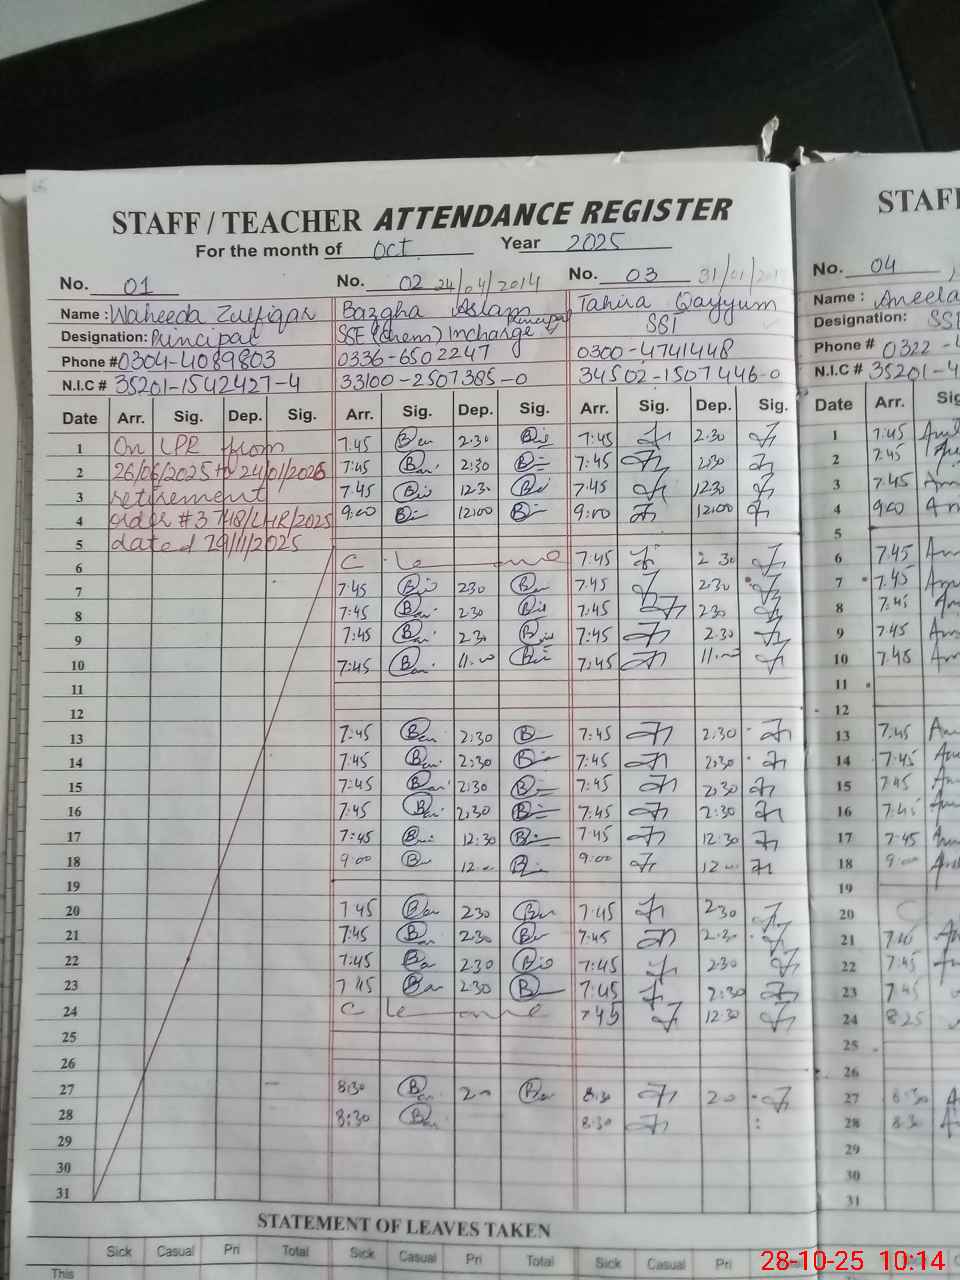 STAFF / TEACHER ATTENDANCE REGISTER
For the month of Oct. Year 2025
No. 01 No. 02 24/04/2014 No. 03 31/01/
Name : Waheeda Zulfiqar Bazgha Aslam Tahira Qayyum
Designation: Principal SSE (Chem) Incharge Principal SST
Phone # 0304-4089803 0336-6502247 0300-4741448
N.I.C # 35201-1542427-4 33100-2507385-0 34502-1507446-0
Date Arr. Sig. Dep. Sig. Arr. Sig. Dep. Sig. Arr. Sig. Dep. Sig.
1 On LPR from 7:45 2:30 7:45 2:30
2 26/06/2025 to 24/01/2026 7:45 2:30 7:45 2:30
3 retirement 7:45 12:30 7:45 12:30
4 order # 3748/LHR/2025 9:00 12:00 9:00 12:00
5 dated 29/1/2025
6 C leave 7:45 2:30
7 7:45 2:30 7:45 2:30
8 7:45 2:30 7:45 2:30
9 7:45 2:30 7:45 2:30
10 7:45 11:00 7:45 11:00
11
12
13 7:45 2:30 7:45 2:30
14 7:45 2:30 7:45 2:30
15 7:45 2:30 7:45 2:30
16 7:45 2:30 7:45 2:30
17 7:45 12:30 7:45 12:30
18 9:00 12:00 9:00 12:00
19
20 7:45 2:30 7:45 2:30
21 7:45 2:30 7:45 2:30
22 7:45 2:30 7:45 2:30
23 7:45 2:30 7:45 2:30
24 C leave 7:45 12:30
25
26
27 8:30 2:00 8:30 2:00
28 8:30 8:30
29
30
31
STATEMENT OF LEAVES TAKEN
Sick Casual Pri Total Sick Casual Pri Total Sick Casual Pri
This
STAF
No. 04
Name : Aneela
Designation: SS
Phone # 0322
N.I.C # 35201-4
Date Arr. Sig
1 7:45
2 7:45
3 7:45
4 9:00
5
6 7:45
7 7:45
8 7:45
9 7:45
10 7:45
11
12
13 7:45
14 7:45
15 7:45
16 7:45
17 7:45
18 9:00
19
20 C
21
22 7:45
23 7:45
24 8:25
25
26
27 8:30
28 8:30
29
30
31
28-10-25 10:14